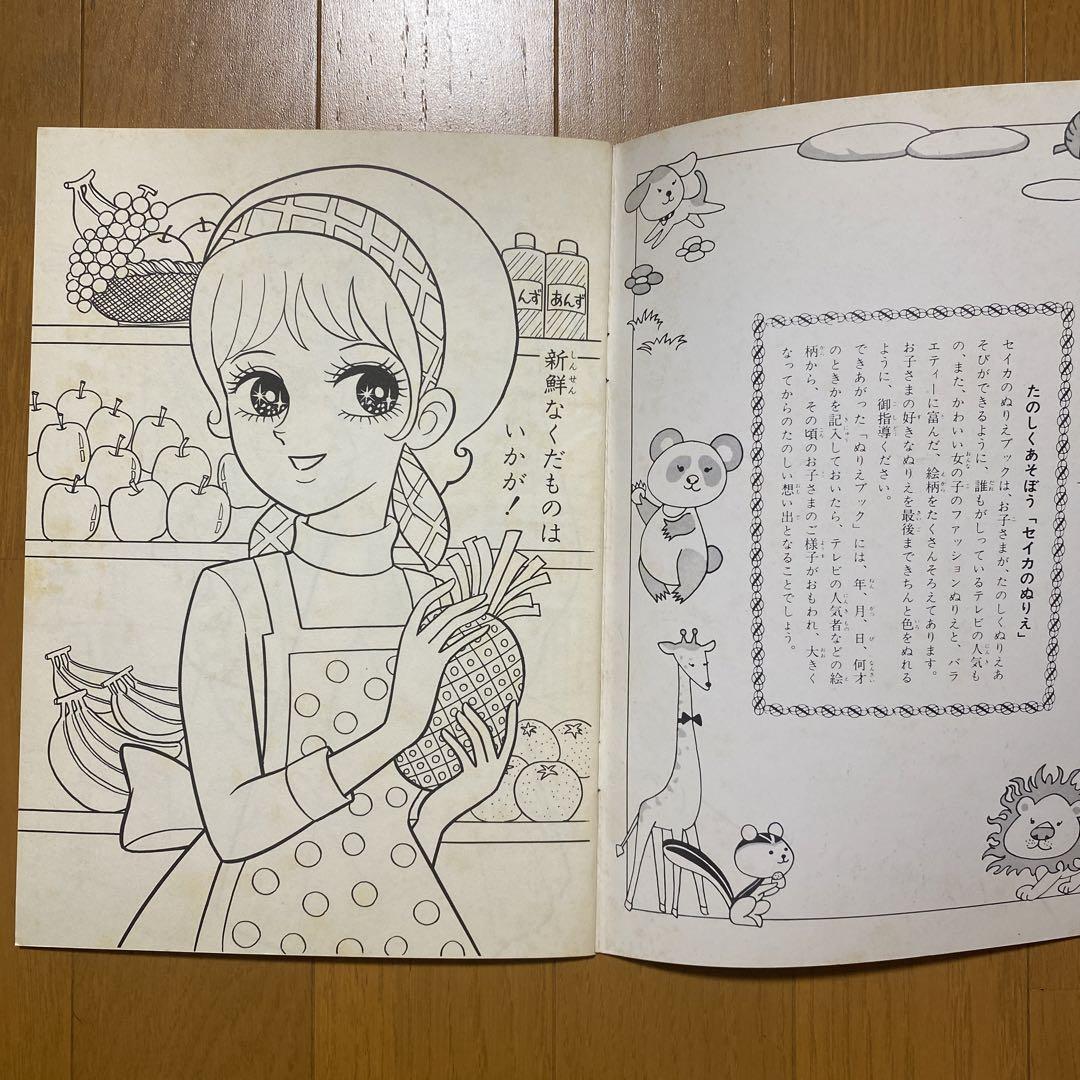 新鮮なくだものは
いかが!
んず
あんず
たのしくあそぼう「セイカのぬりえ」
セイカのぬりえブックは、お子さまが、たのしくぬりえあ
そびができるように、誰もがしっているテレビの人気も
の、また、かわいい女の子のファッションぬりえと、バラ
エティーに富んだ、絵柄をたくさんそろえてあります。
お子さまの好きなぬりえを最後まできちんと色をぬれる
ように、御指導ください。
できあがった「ぬりえブック」には、年、月、日、何才
のときかを記入しておいたら、テレビの人気者などの絵
柄から、その頃のお子さまのご様子がおもわれ、大きく
なってからのたのしい想い出となることでしょう。